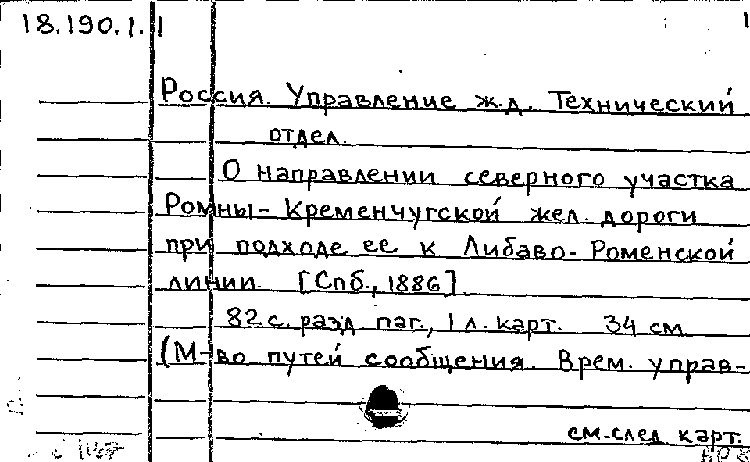 18.190.1.1
1
Россия. Управление ж.д. Технический
отдел.
О направлении северного участка
Ромны-Кременчугской жел. дороги
при подходе ее к Либаво-Роменской
линии. [Спб., 1886].
82 с. разд. паг., 1 л. карт. 34 см.
(М-во путей сообщения. Врем. управ-
см. след. карт.